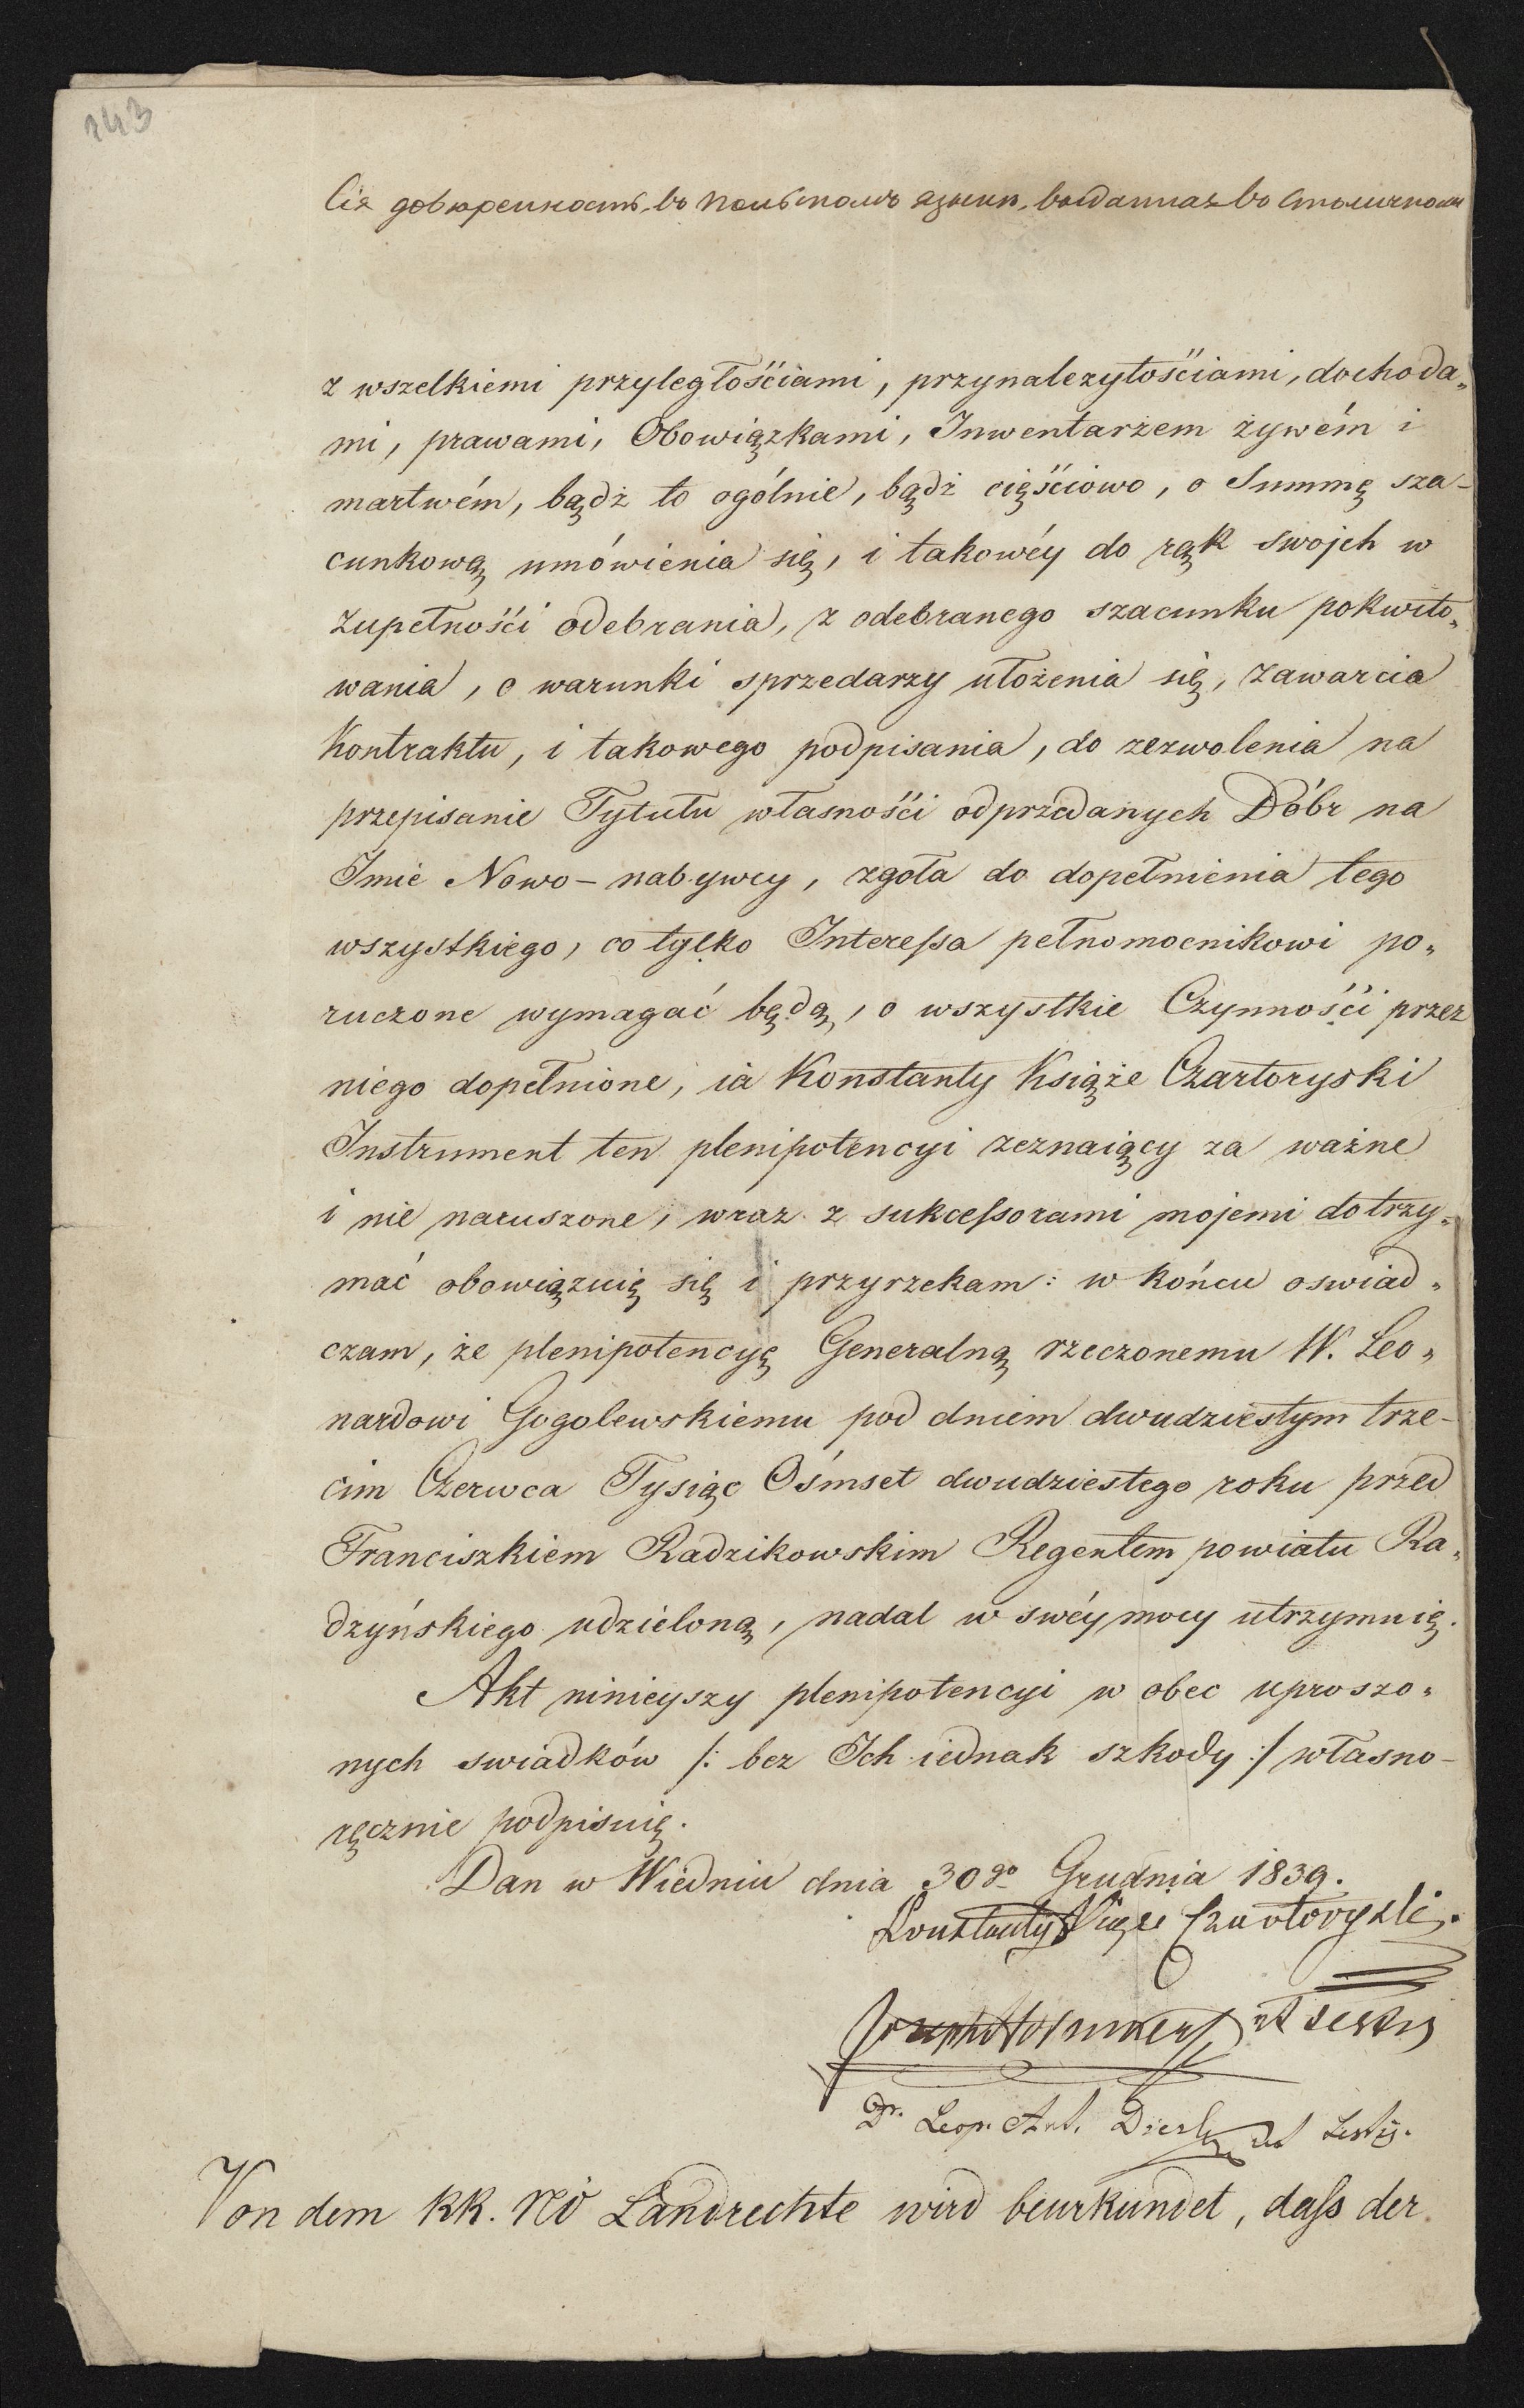 143
Сія довѣренность, въ польскомъ языкѣ, выданная въ столичномъ
z wszelkiemi przyległościami, przynależytościami, dochoda„
mi, prawami, Obowiązkami, Inwentarzem żywém i
martwém, bądź to ogólnie, bądź cięściowo, o Summę sza-
cunkową umówienia się, i takowéy do rąk swojch w
Zupełności odebrania, z odebranego szacunku pokwito„
wania, o warunki sprzedarzy ułożenia się, zawarcia
Kontraktu, i takowego podpisania, do zezwolenia na
przepisanie Tytułu własności odprzedanych Dóbr na
Imie Nowo-nabywcy, zgoła do dopełnienia tego
wszystkiego, co tylko Interessa pełnomocnikowi po„
ruczone wymagać będą, o wszystkie Czynności przez
niego dopełnione, ia Konstanty Książe Czartoryski
Instrument ten plenipotencyi zeznaiący za ważne
i nie naruszone, wraz z sukcessorami mojemi dotrzy„
mać obowiązuię się i przyrzekam: w końcu oswiad„
czam, że plenipotencyę Generalną rzeczonemu W. Leo„
nardowi Gogolewskiemu pod dniem dwudziestym trze-
cim Czerwca Tysiąc Ośmset dwudziestego roku przed
Franciszkiem Radzikowskim Regentem powiatu Ra„
dzyńskiego udzieloną, nadal w swéy mocy utrzymuię.
Akt ninieyszy plenipotencyi w obec uproszo„
nych swiadków /: bez Ich iednak szkody :/ własno-
ręcznie podpisuię.
Dan w Wiedniu dnia 30go Grudnia 1839.
Konstanty Książe Czartoryski.
als testis
Dr. Leop. Ant. als testis.
Von dem kk. NÖ Landrechte wird beurkundet, daß der